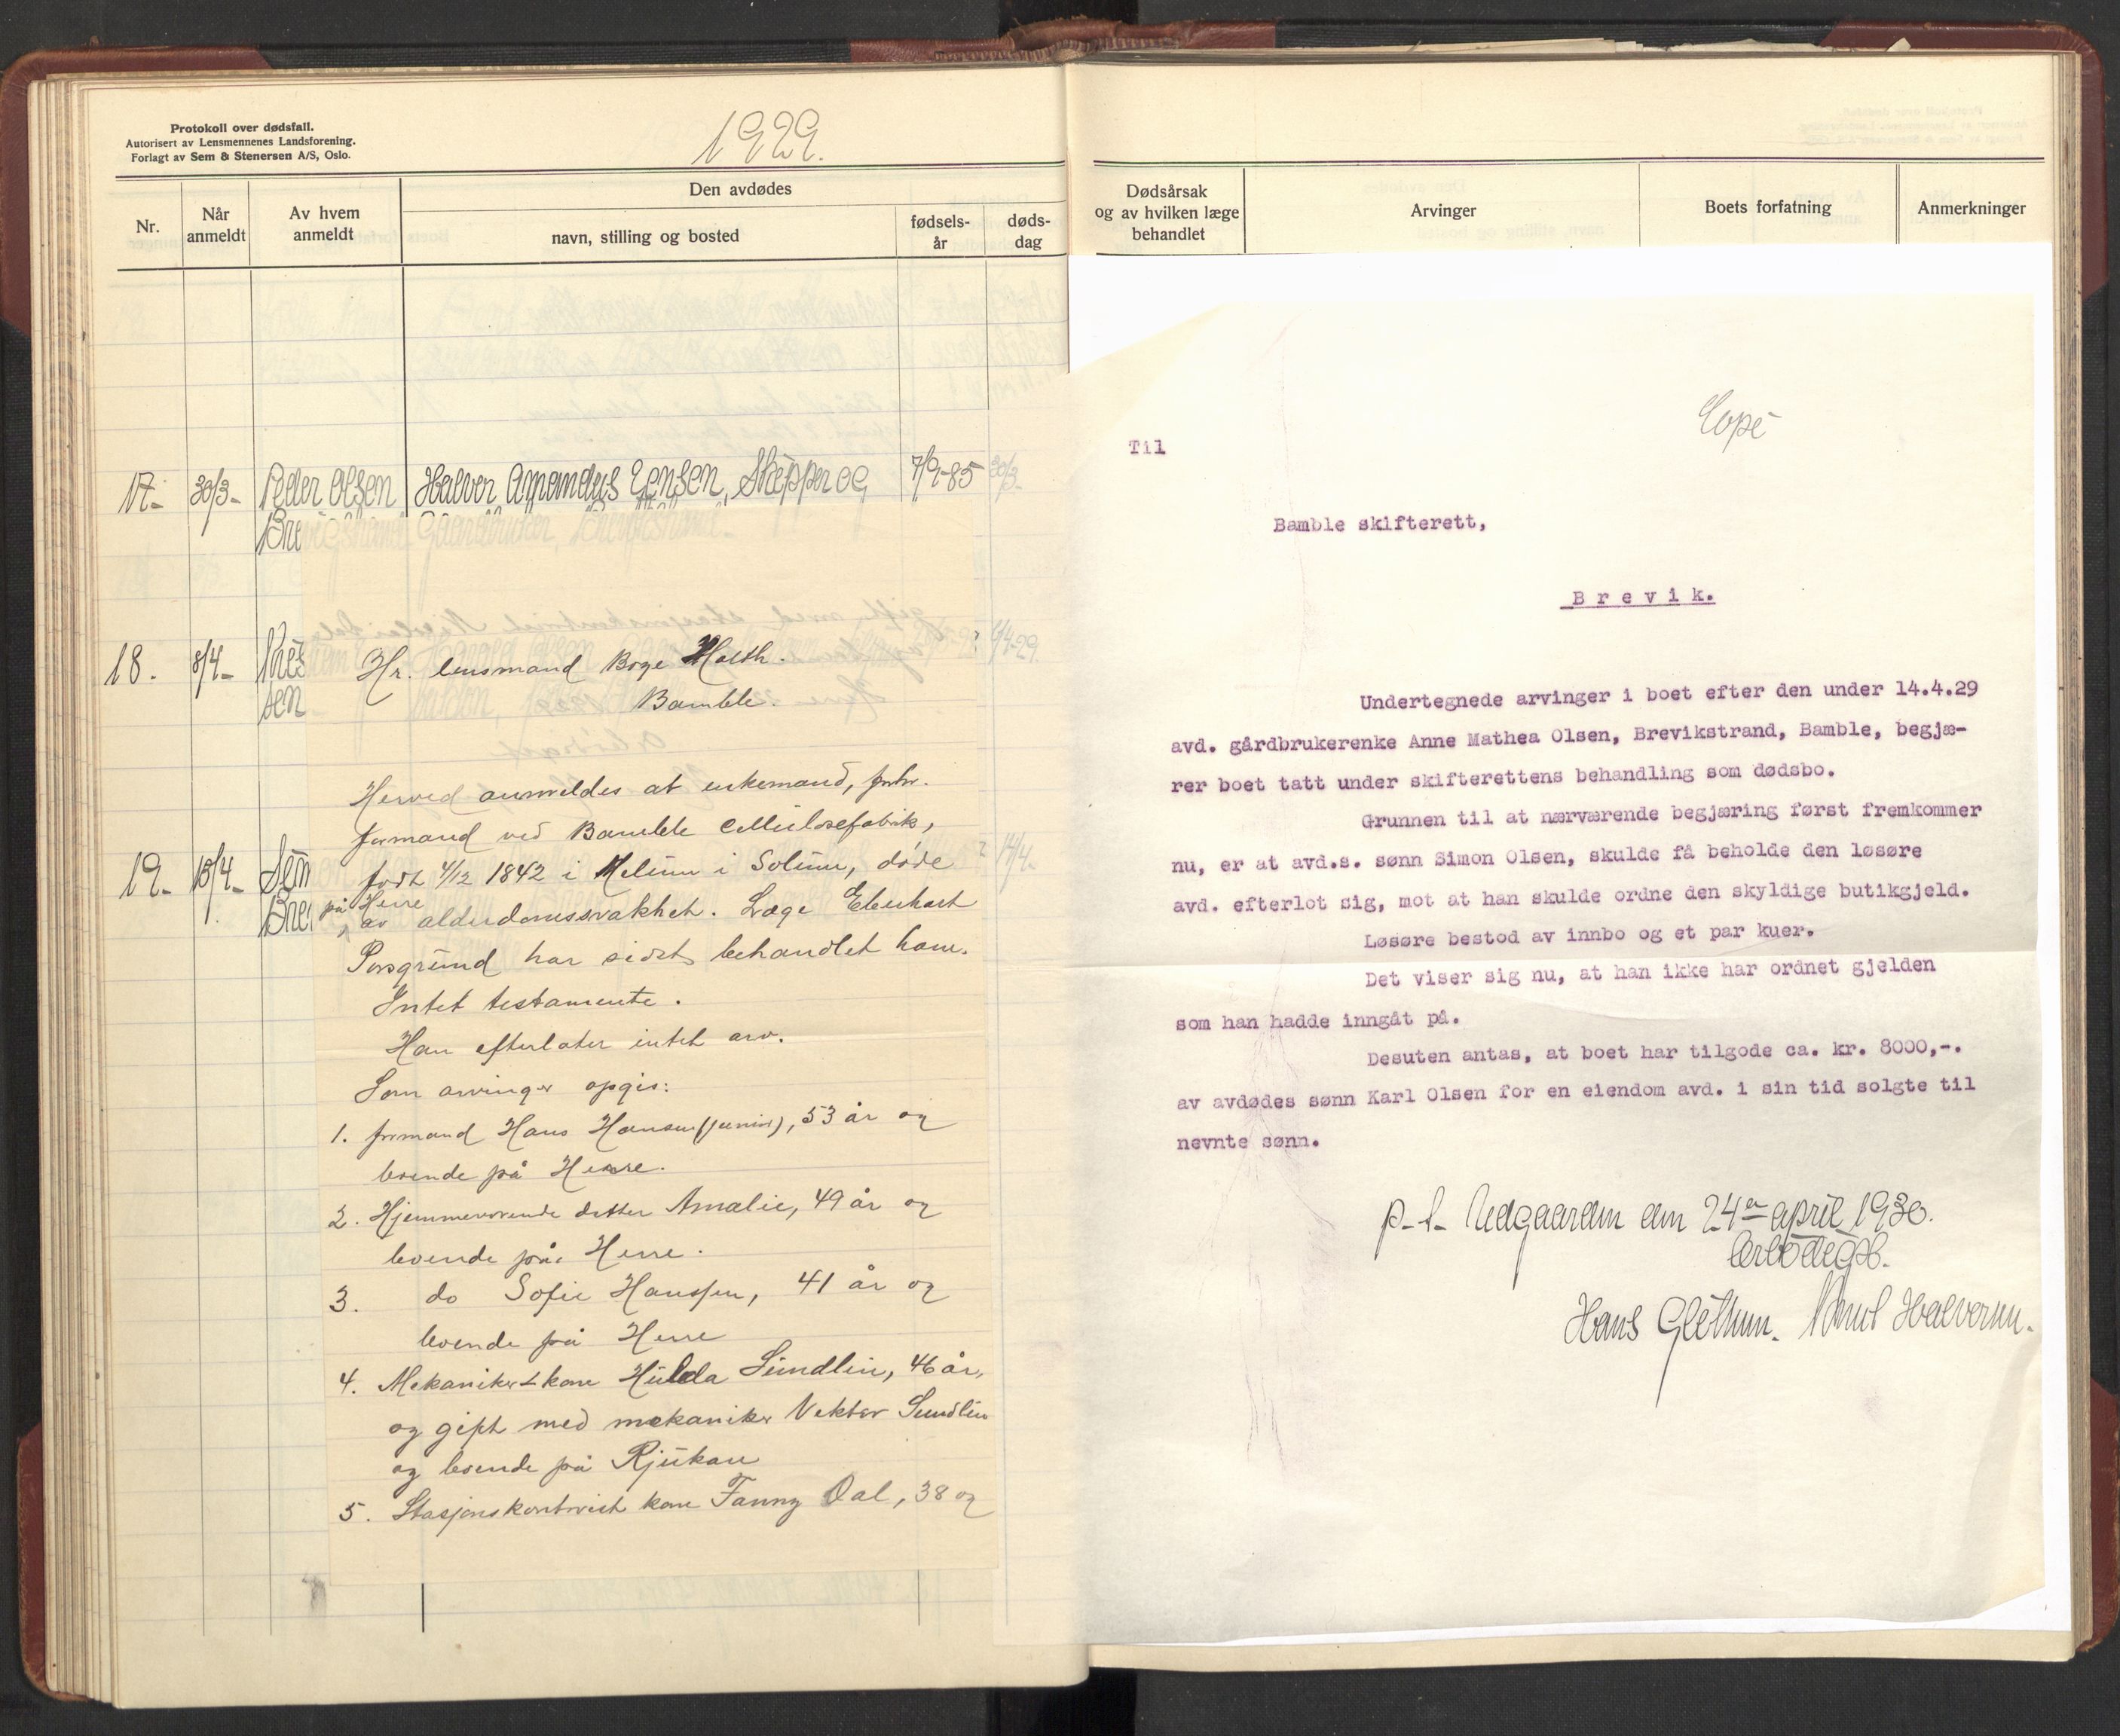 Protokoll over dødsfall.
Autorisert av Lensmennenes Landsforening.
Forlagt av Sem & Stenersen A/S, Oslo.
1929.
Nr.
Når anmeldt
Av hvem anmeldt
Den avdødes
navn, stilling og bosted
fødsels-år
døds-dag
17.- 30/3- Peder Olsen Halvor Amandus Jensen, Skipper og 7/9-85 30/3-
Brevigstrand Gaardbruker, Brevigstrand.
18. 8/4-
sen
19.- 15/4-
Hr. lensmand Boye Holth.
Bamble.
Herved anmeldes at enkemand, forhv.
formand ved Bamble Cellulosefabrik,
født 4/12 1842 i Melum i Solum, døde
på Herre
av alderdomssvakhet. Læge Eberhart
Porsgrund har sidst behandlet ham.
Intet testamente.
Han efterlater intet arv.
Som arvinger opgis:
1. formand Hans Hansen (junior), 53 år og
boende på Herre.
2. Hjemmeværende datter Amalie, 49 år og
boende på Herre.
3. do Sofie Hanssen, 41 år og
boende på Herre
4. Mekanikerkone Hulda Sundlin, 46 år,
og gift med mekaniker Viktor Sundlin
og boende på Rjukan
5. Stasjonskontorist kone Fanny Dal, 38 og
Dødsårsak og av hvilken læge behandlet
Arvinger
Boets forfatning
Anmerkninger
Copi
Til
Bamble skifterett,
Brevik.
Undertegnede arvinger i boet efter den under 14.4.29
avd. gårdbrukerenke Anne Mathea Olsen, Brevikstrand, Bamble, begjæ-
rer boet tatt under skifterettens behandling som dødsbo.
Grunnen til at nærværende begjæring først fremkommer
nu, er at avd.s. sønn Simon Olsen, skulde få beholde den løsøre
avd. efterlot sig, mot at han skulde ordne den skyldige butikgjeld.
Løsøre bestod av innbo og et par kuer.
Det viser sig nu, at han ikke har ordnet gjelden
som han hadde inngåt på.
Desuten antas, at boet har tilgode ca. kr. 8000,-.
av avdødes sønn Karl Olsen for en eiendom avd. i sin tid solgte til
nevnte sønn.
p.t. Udgaarden den 24de april 1930.
Ærbødigst.
Hans Glittum. Knut Halvorsen.